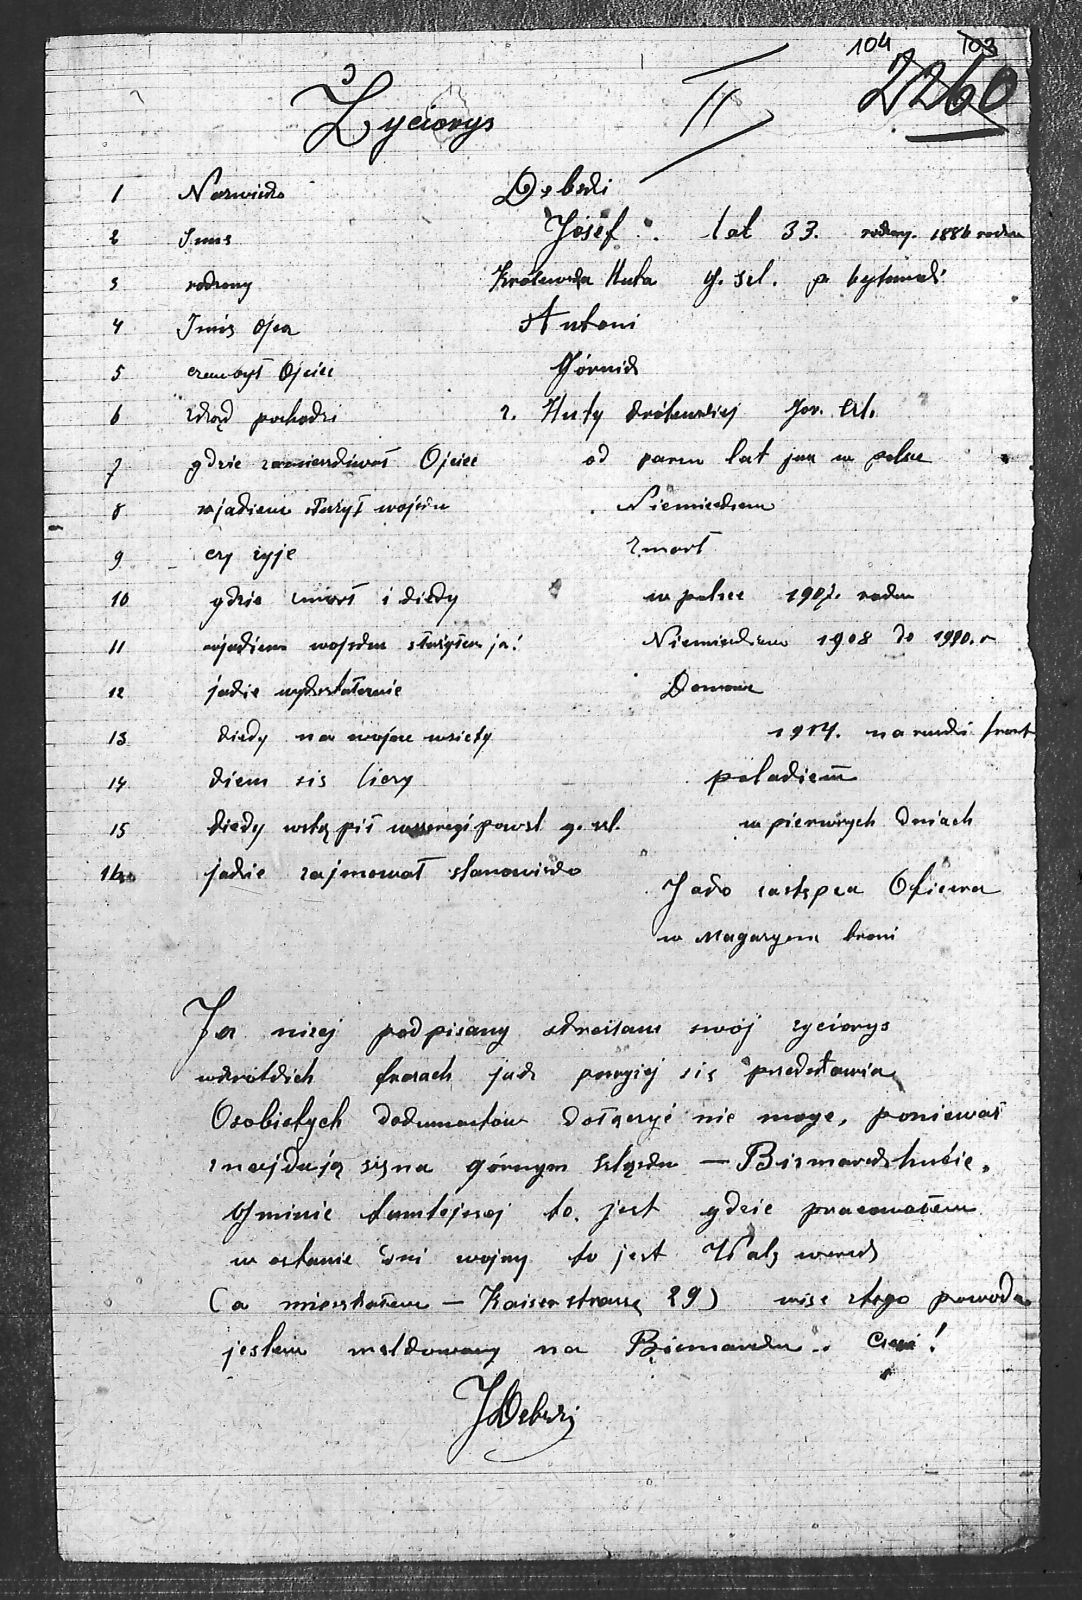 104 103
2260
Życiorys II
1 Nazwisko Debski
2 Imie Josef lat 33. rodzony. 1886 roku
3 rodzony Królewska Huta G. Szl. p bytomski
4 Imię Ojca Antoni
5 czem był Ojciec Górnik
6 zkąd pochodzi z. Huty królewskiej Gor. Szl.
7 gdzie zamieszkiwał Ojciec od paru lat jua w polsce
8 wjakiem służył wojsku Niemieckiem
9 czy żyje zmarł
10 gdzie umarł i kiedy w polsce 1907. roku
11 wjakiem wojsku służyłem ja: Niemieckiem 1908 do 1910. r
12 jakie wykształcenie Domowe
13 kiedy na wojne wzięty 1914. na ruski front
14 kiem sis liczy polakiem
15 kiedy wstąpił wszeregi powst g. szl. w pierwszych dniach
16 jakie zajmował stanowisko Jako zastępca Oficera
w Magazynu broni
Ja niżej podpisany skreślam swój życiorys
wkrótkich frazach jak powyżej się przedstawia
Osobistych dokumentów dołączyć nie moge, ponieważ
znajdują się na górnym szląsku — Bismarckhucie,
Gminie tamtejszej to jest gdzie pracowałem
w ostanie dni wojny to jest Walzwerk
(a mieszkałem — Kaiserstrasse 29) wise ztego powodu
jestem meldowany na Bismarcku.
JDebski